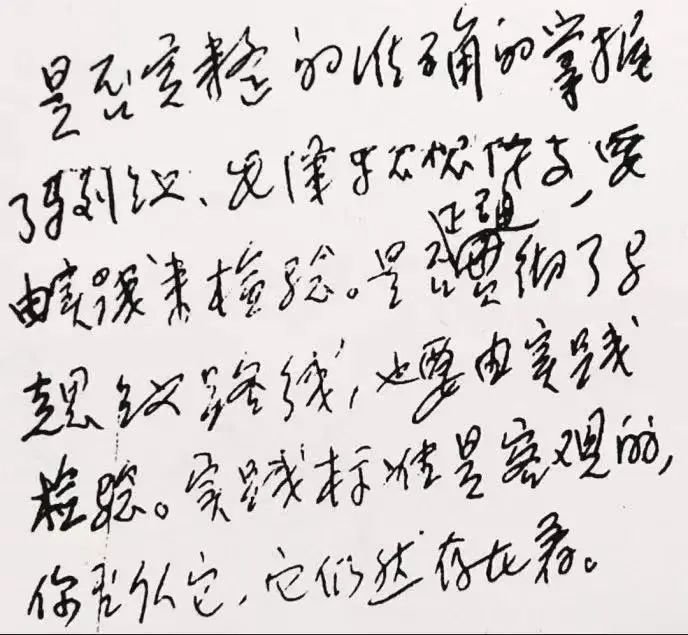 是否完整的准确的掌握
了马列主义、毛泽东思想体系,要
由实践来检验。是否贯彻了马
克思主义路线,也要由实践
检验。实践标准是客观的,
你否认它,它仍然存在着。